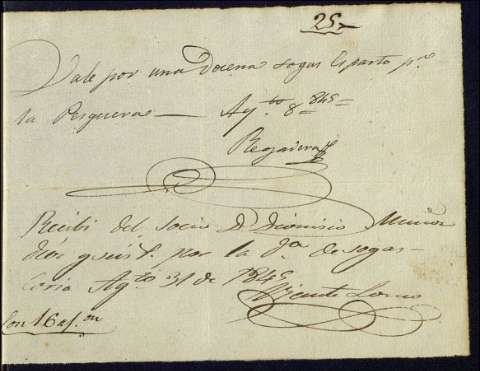 25,,
Vale por una Docena sogas Esparto pª
la Pesquera — Agto 8 = 845 =
Regadera
Recibi del socio Dn Dionisio Muñoz
dies y seis por la dª de sogas
Agto 31 de 1845
Vicente
Son 16